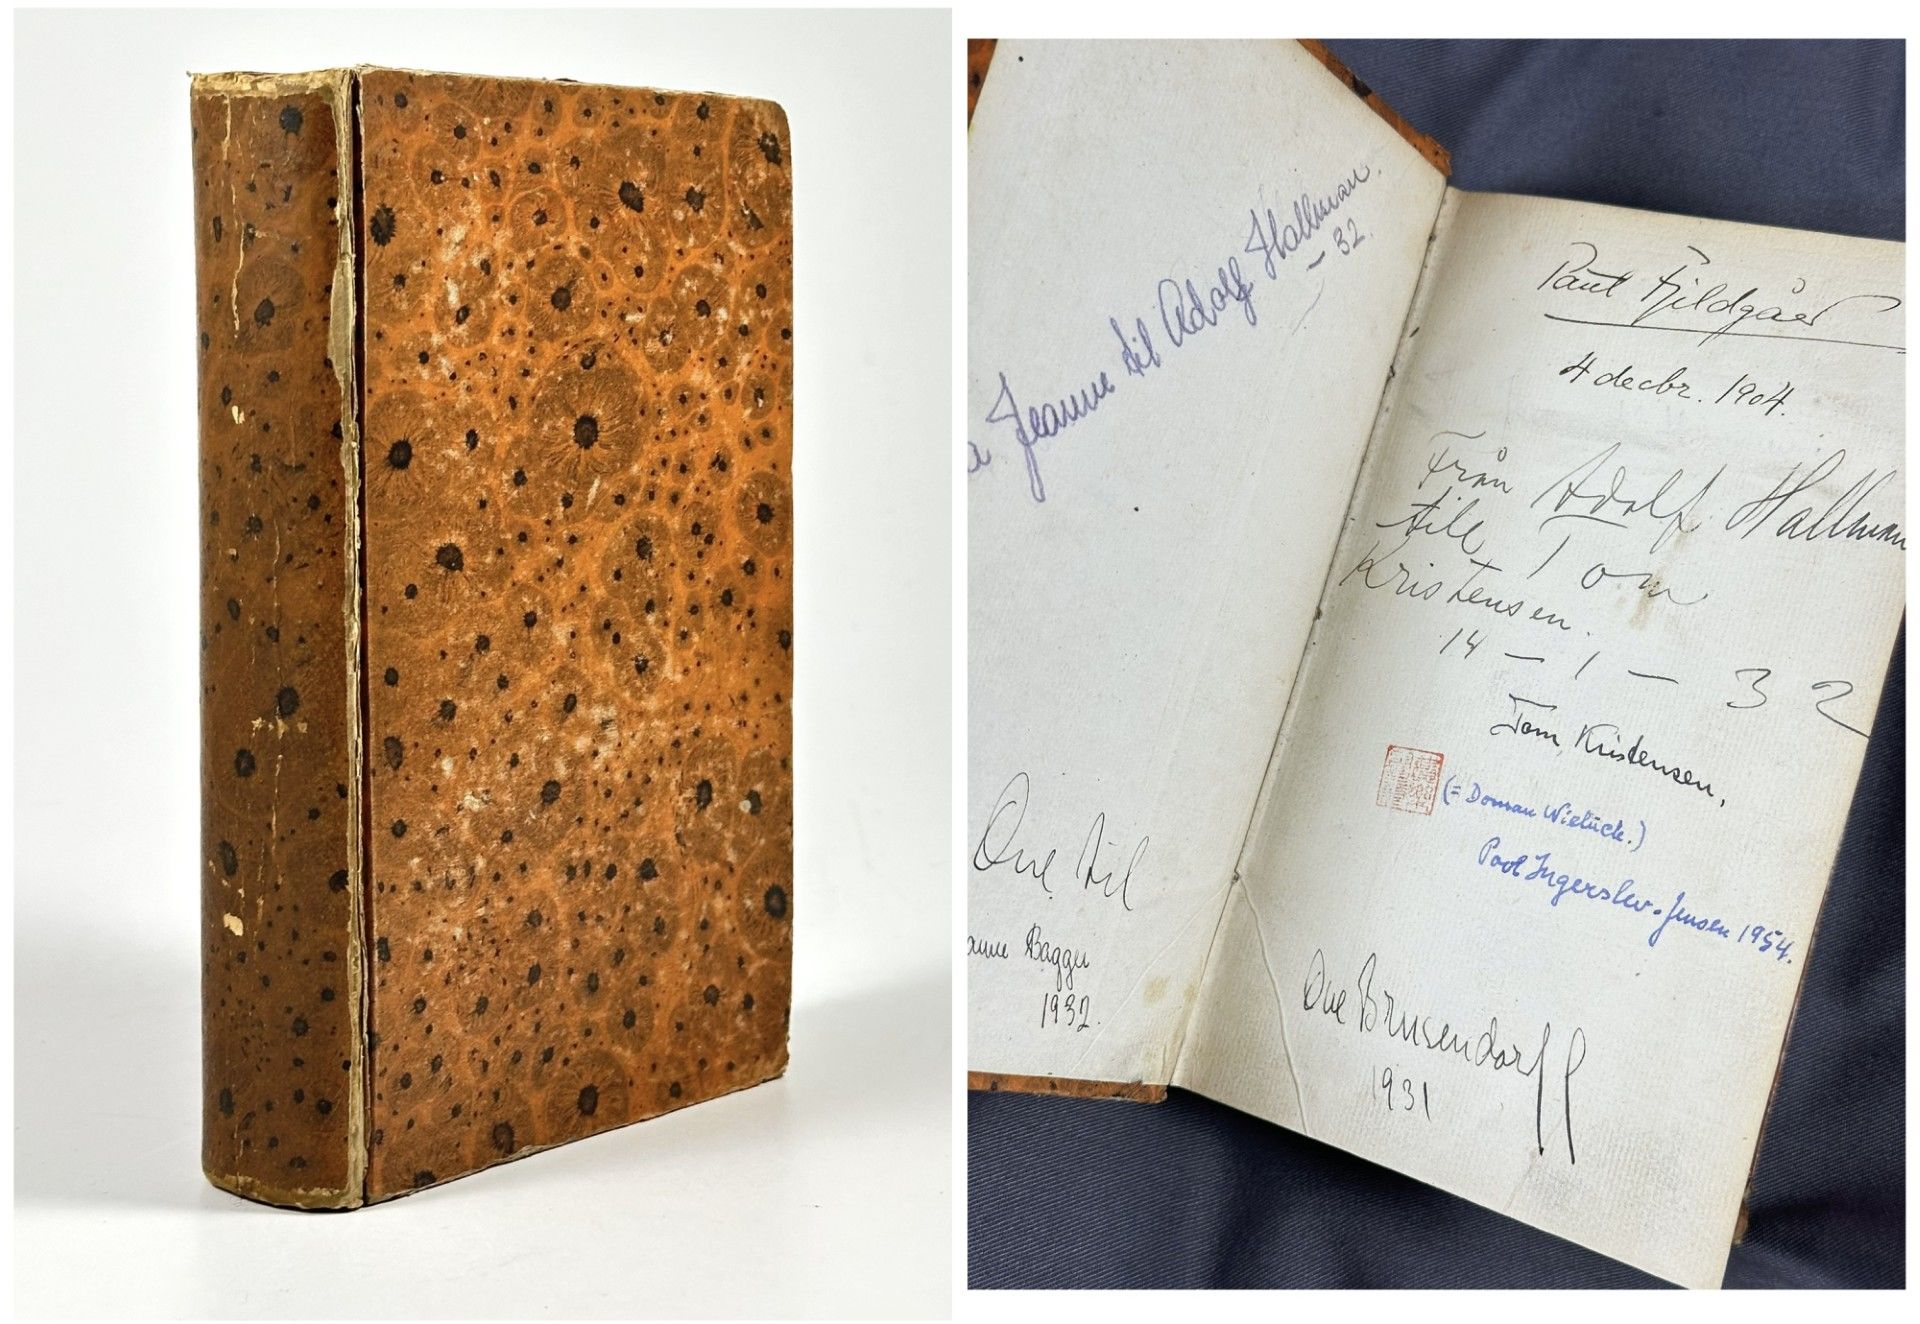 Jeanne til Adolf Hallman.
– 32.
Ove til
Bagger
1932.
Poul Fjildgård
4 decbr. 1904.
Från Adolf Hallman
till Tom
Kristensen.
14 – 1 – 32
Tom Kristensen.
(= Doman Wielück.)
Povl Ingerslev-Jensen 1954.
Ove Brusendorff
1931